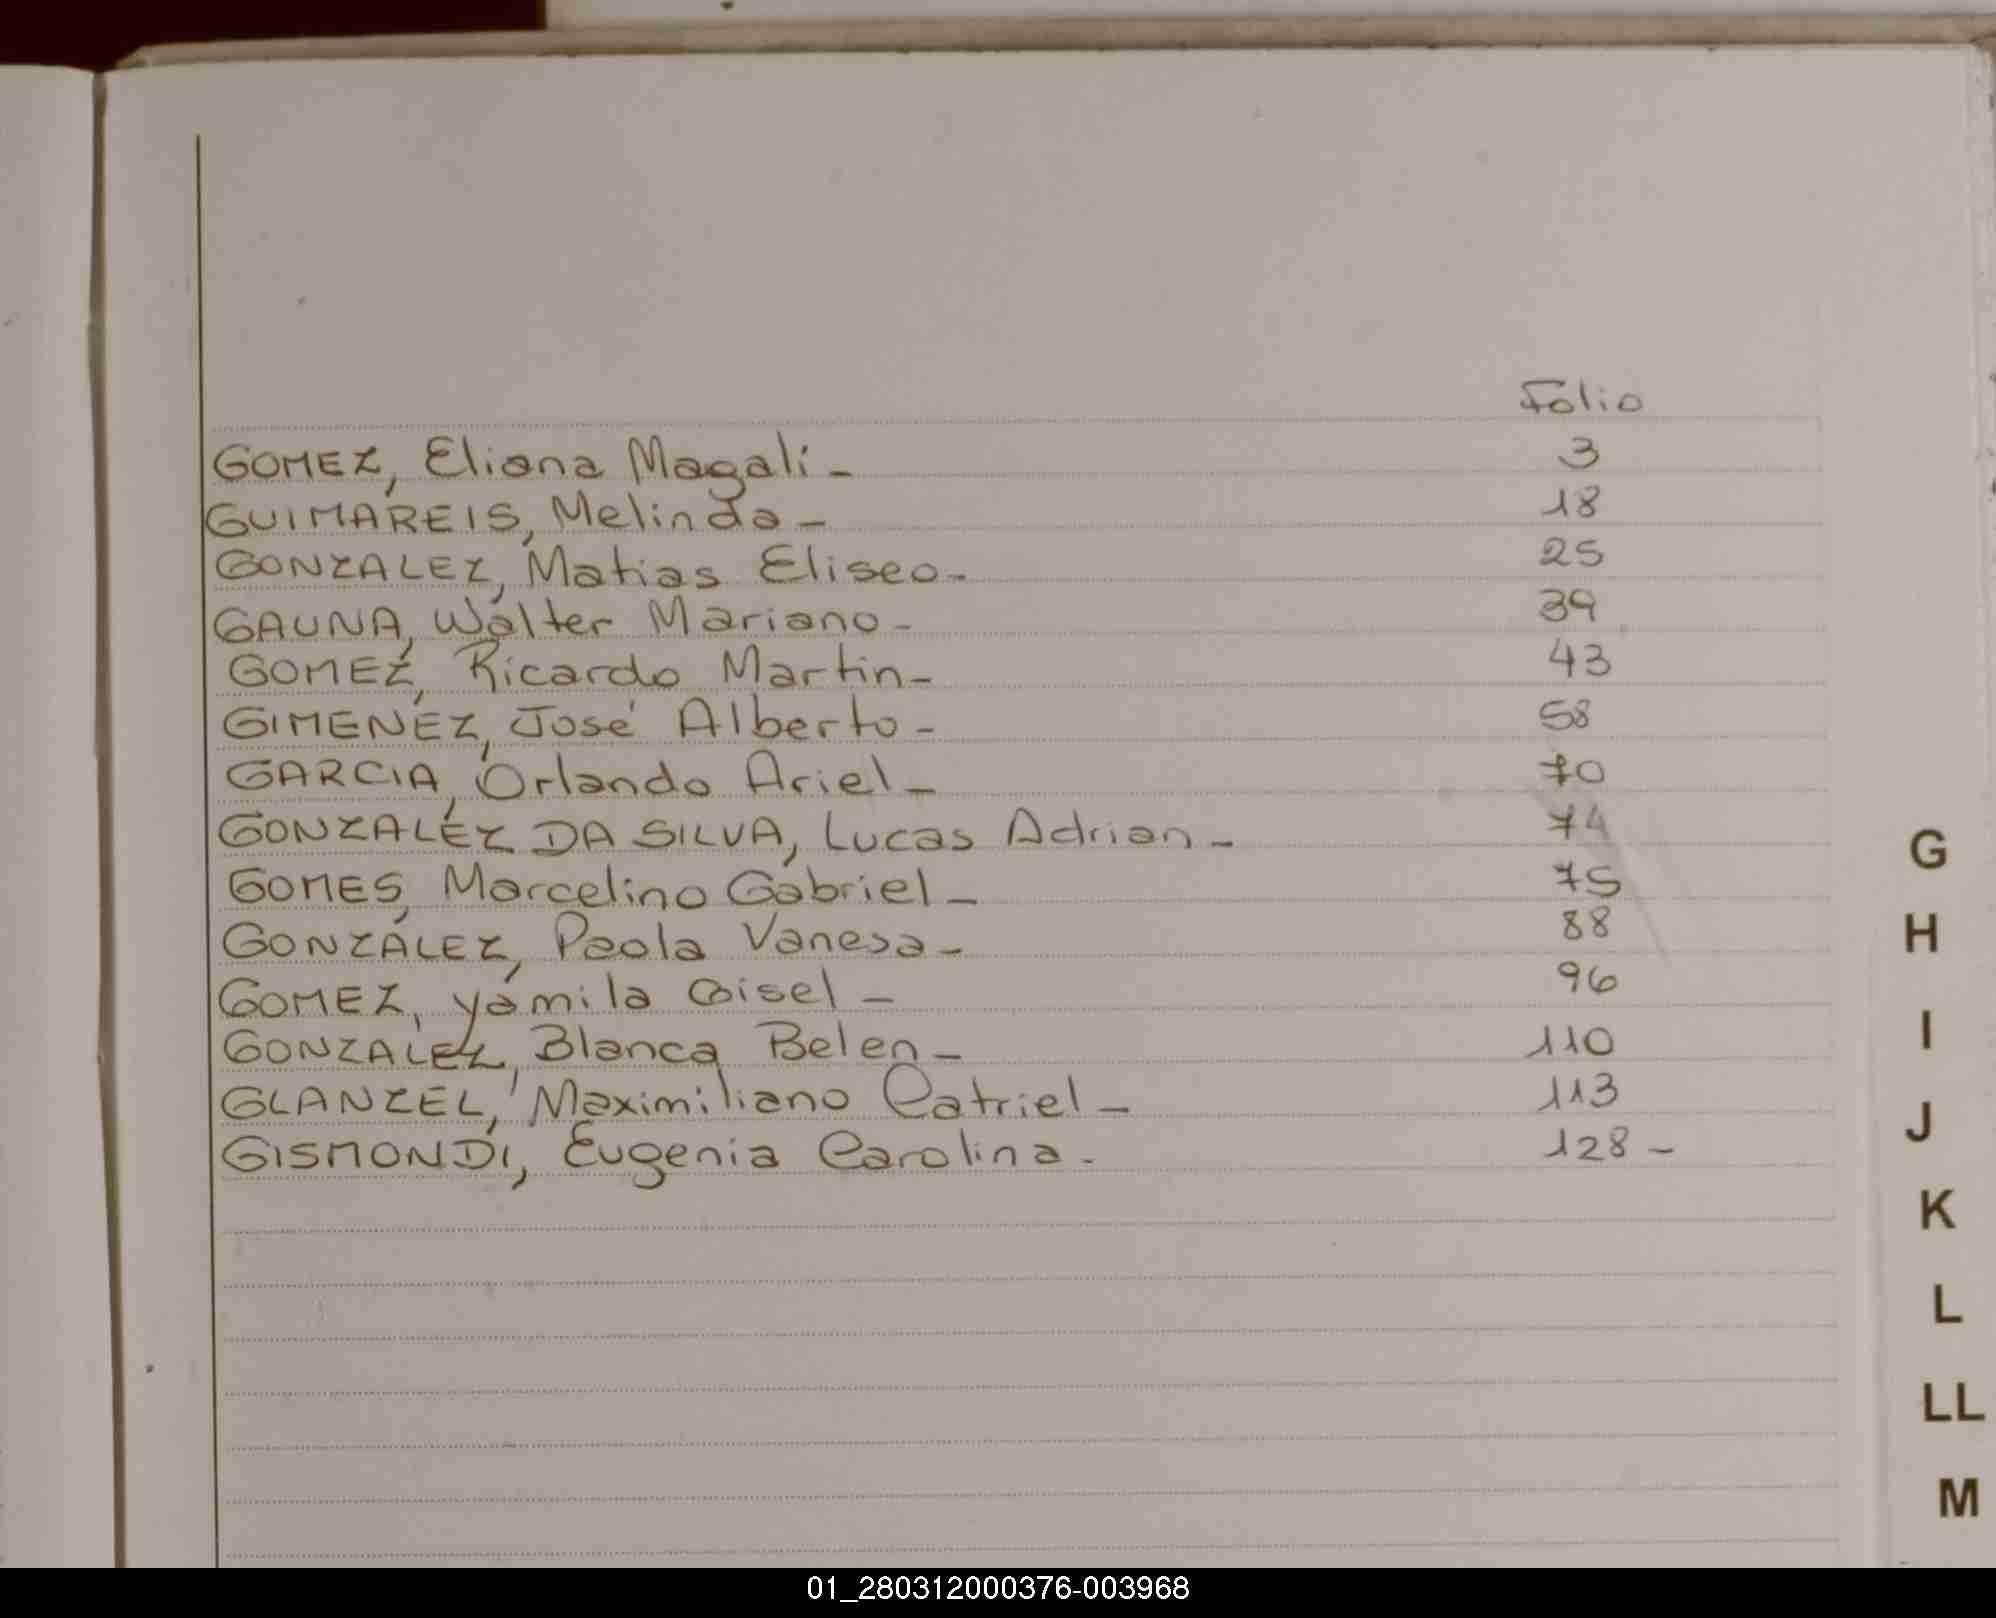 Folio
GOMEZ, Eliana Magali - 3
GUIMAREIS, Melinda - 18
GONZALEZ, Matias Eliseo - 25
GAUNA, Walter Mariano - 39
GOMEZ, Ricardo Martin - 43
GIMENEZ, José Alberto - 58
GARCIA, Orlando Ariel - 70
GONZALEZ DA SILVA, Lucas Adrian - 74
GOMES, Marcelino Gabriel - 75
GONZALEZ, Paola Vanesa - 88
GOMEZ, Yamila - 96
GONZALEZ, Blanca Belen - 110
GLANZEL, Maximiliano Catriel - 113
GISMONDI, Eugenia Carolina - 128 -
G
H
I
J
K
L
LL
M
01_280312000376-003968